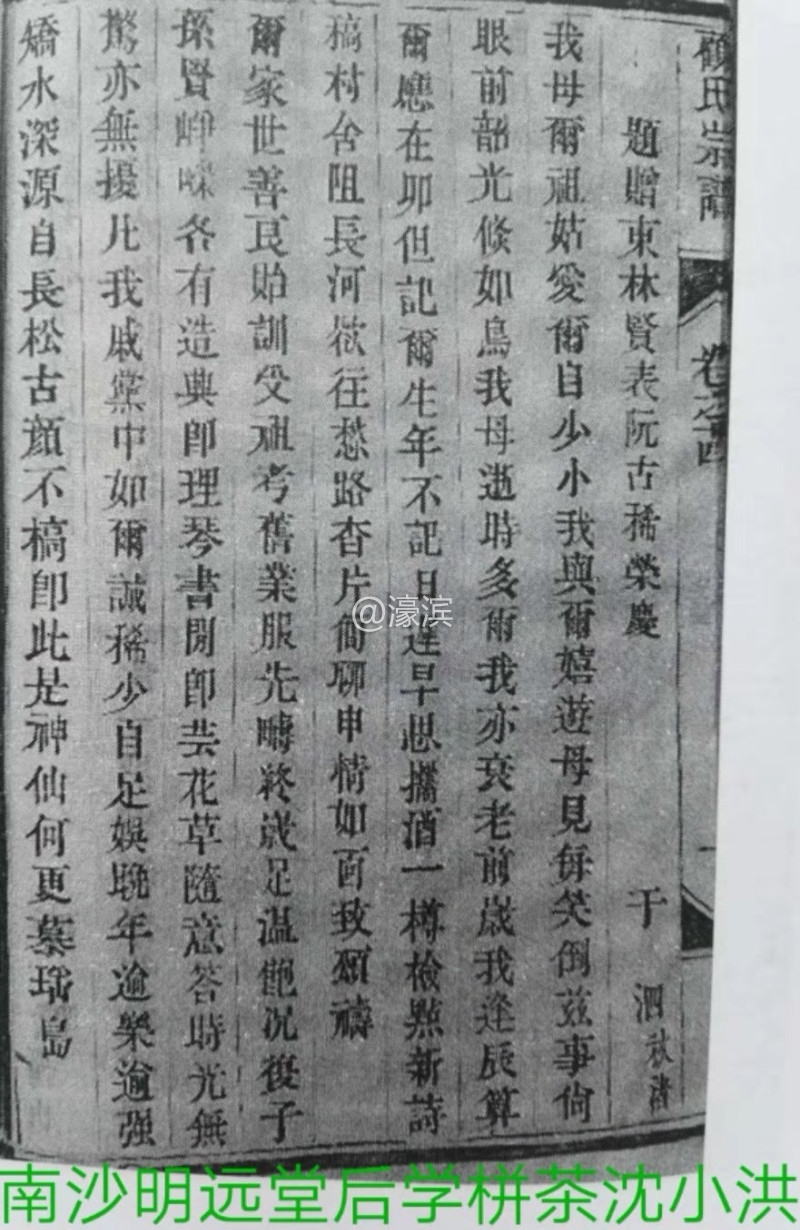 顧氏宗譜 卷之四 一
題贈東林賢表阮古稀榮慶 于泗秋渚
我母爾祖姑愛爾自少小我與爾嬉遊母見每笑倒茲事尙
眼前韶光倏如鳥我母逝時多爾我亦衰老前歲我逢辰算
爾應在卯但記爾生年不記月遲早思攜酒一樽檢點新詩
稿村舍阻長河欲往愁路杳片簡聊申情如面致頌禱
爾家世善良貽訓受祖考舊業服先疇終歲足温飽況復子
孫賢崢嶸各有造興卽理琴書閒卽芸花草隨意答時光無
驚亦無擾凡我戚黨中如爾誠稀少自足娛晚年逾樂逾强
矯水深源自長松古顔不槁卽此是神仙何更慕瑤島
@濠滨
南沙明远堂后学栟茶沈小洪